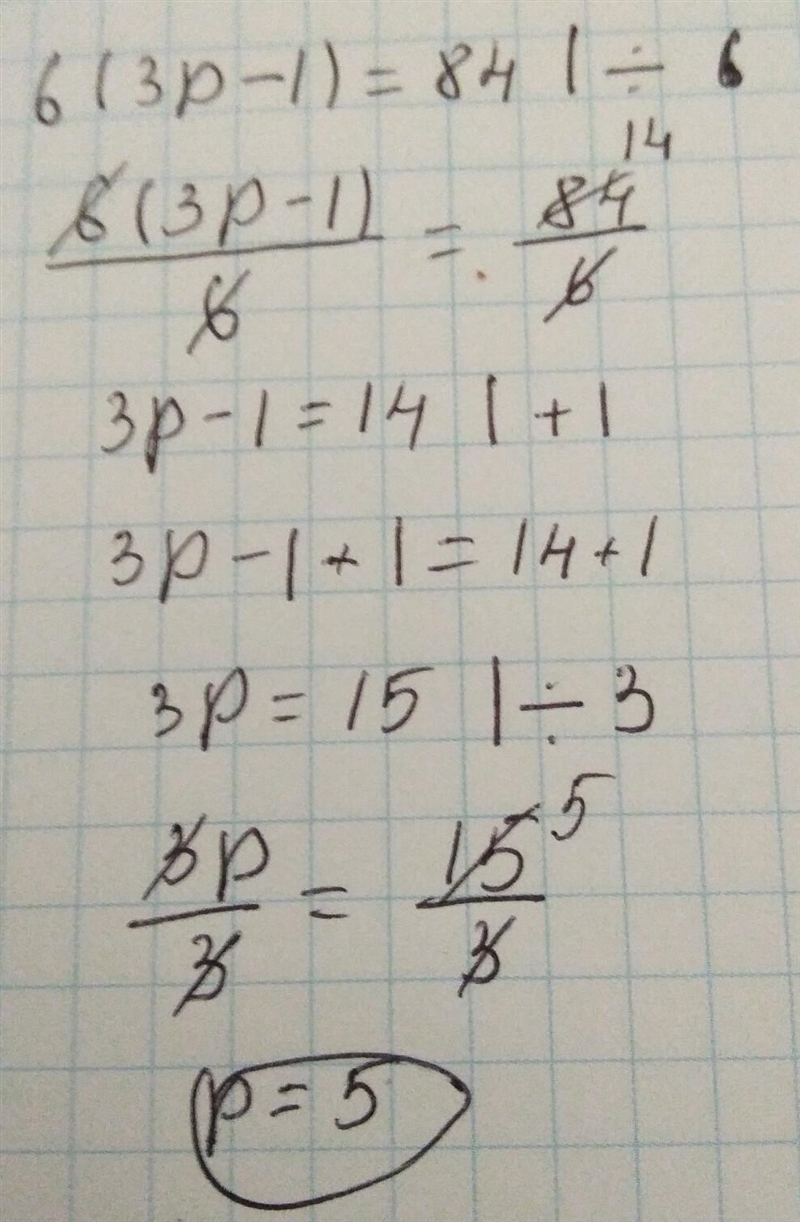 6(3p-1)=84 | ÷ 6
6(3p-1)/6 = 84/6 14
3p-1=14 | +1
3p-1+1=14+1
3p=15 | ÷ 3
3p/3 = 15/3 5
p=5